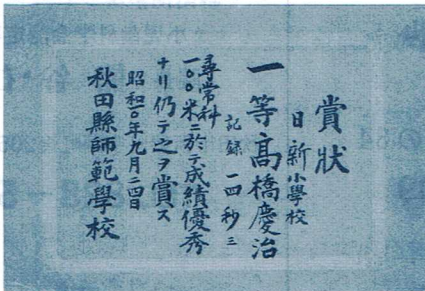 賞狀
日新小學校
一等高橋慶治
記録 一四秒三
尋常科
一〇〇米ニ於テ成績優秀
ナリ仍テ之ヲ賞ス
昭和一〇年九月二四日
秋田縣師範學校